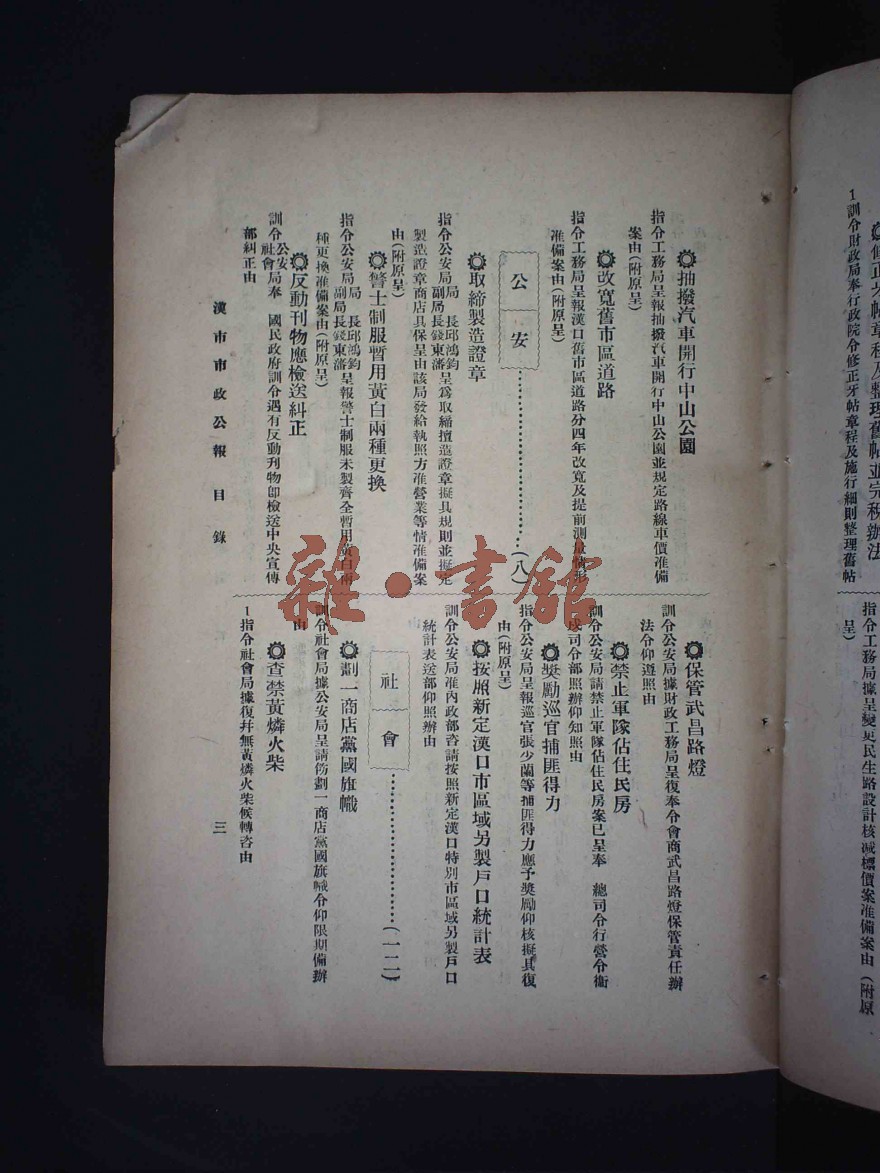 1訓令財政局奉行政院令修正牙帖章程及施行細則整理舊帖
指令工務局據呈變更民生路設計核減標價案准備案由（附原
呈）
抽撥汽車開行中山公園
指令工務局呈報抽撥汽車開行中山公園並規定路線車價准備
案由（附原呈）
改寬舊市區道路
指令工務局呈報漢口舊市區道路分四年改寬及提前測量情形
准備案由（附原呈）
公安（八）
取締製造證章
指令公安局局長邱鴻鈞副局長錢東藩呈為取締擅造證章擬具規則並擬定
製造證章商店具保呈由該局發給執照方准營業等情准備案
由（附原呈）
警士制服暫用黃白兩種更換
指令公安局局長邱鴻鈞副局長錢東藩呈報警士制服未製齊全暫用黃白兩
種更換准備案由（附原呈）
反動刊物應檢送糾正
訓令公安社會局奉 國民政府訓令遇有反動刊物卽檢送中央宣傳
部糾正由
保管武昌路燈
訓令公安局據財政工務局呈復奉令會商武昌路燈保管責任辦
法令仰遵照由
禁止軍隊佔住民房
訓令公安局請禁止軍隊佔住民房案已呈奉 總司令行營令衛
戍司令部照辦仰知照由
獎勵巡官捕匪得力
指令公安局呈報巡官張少蘭等捕匪得力應予獎勵仰核擬具復
由（附原呈）
按照新定漢口市區域另製戶口統計表
訓令公安局准內政部咨請按照新定漢口特別市區域另製戶口
統計表送部仰照辦由
社會（一二）
劃一商店黨國旗幟
訓令社會局據公安局呈請飭劃一商店黨國旗幟令仰限期備辦
由
查禁黃燐火柴
1指令社會局據復幷無黃燐火柴候轉咨由
漢市市政公報 目錄
三
雜·書館